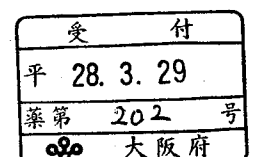 受付
平 28. 3. 29
薬第 202 号
大阪府